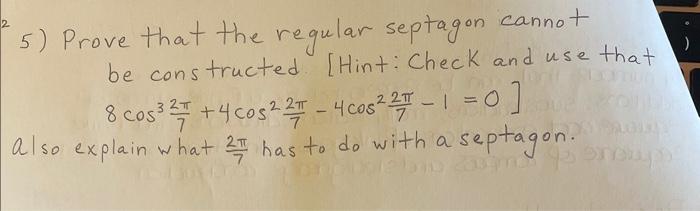 2
5) Prove that the regular septagon cannot
be constructed. [Hint: Check and use that
8 cos³ 2π/7 + 4 cos² 2π/7 - 4 cos² 2π/7 - 1 = 0 ]
Also explain what 2π/7 has to do with a septagon.